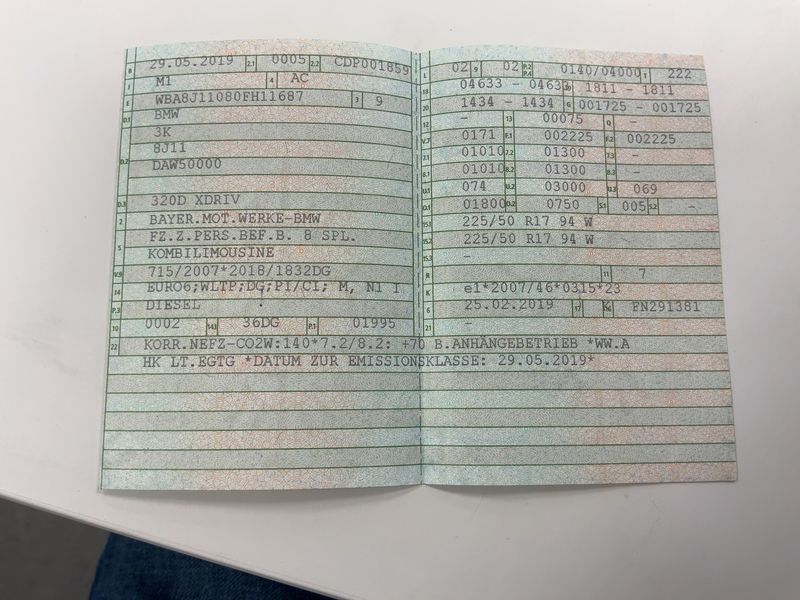 B 29.05.2019 2.1 0005 2.2 CDP001859
J M1 4 AC
E WBA8J11080FH11687 3 9
D.1 BMW
3K
D.2 8J11
DAW50000
D.3 320D XDRIV
2 BAYER.MOT.WERKE-BMW
5 FZ.Z.PERS.BEF.B. 8 SPL.
KOMBILIMOUSINE
V.9 715/2007*2018/1832DG
14 EURO6;WLTP;DG;PI/CI; M, N1 I
P.3 DIESEL
10 0002 14.1 36DG P.1 01995
L 02 9 02 P.2 P.4 0140/04000 T 222
18 04633 - 0463 19 1811 - 1811
20 1434 - 1434 G 001725 - 001725
12 - 13 00075 Q -
V.7 0171 F.1 002225 F.2 002225
7.1 01010 7.2 01300 7.3 -
8.1 01010 8.2 01300 8.3 -
U.1 074 U.2 03000 U.3 069
O.1 01800 O.2 0750 S.1 005 S.2 -
15.1 225/50 R17 94 W
15.2 225/50 R17 94 W
15.3 -
R 11 7
K e1*2007/46*0315*23
6 25.02.2019 17 16 FN291381
21 -
22 KORR.NEFZ-CO2W:140*7.2/8.2: +70 B.ANHÄNGEBETRIEB *WW.A
HK LT.EGTG *DATUM ZUR EMISSIONSKLASSE: 29.05.2019*